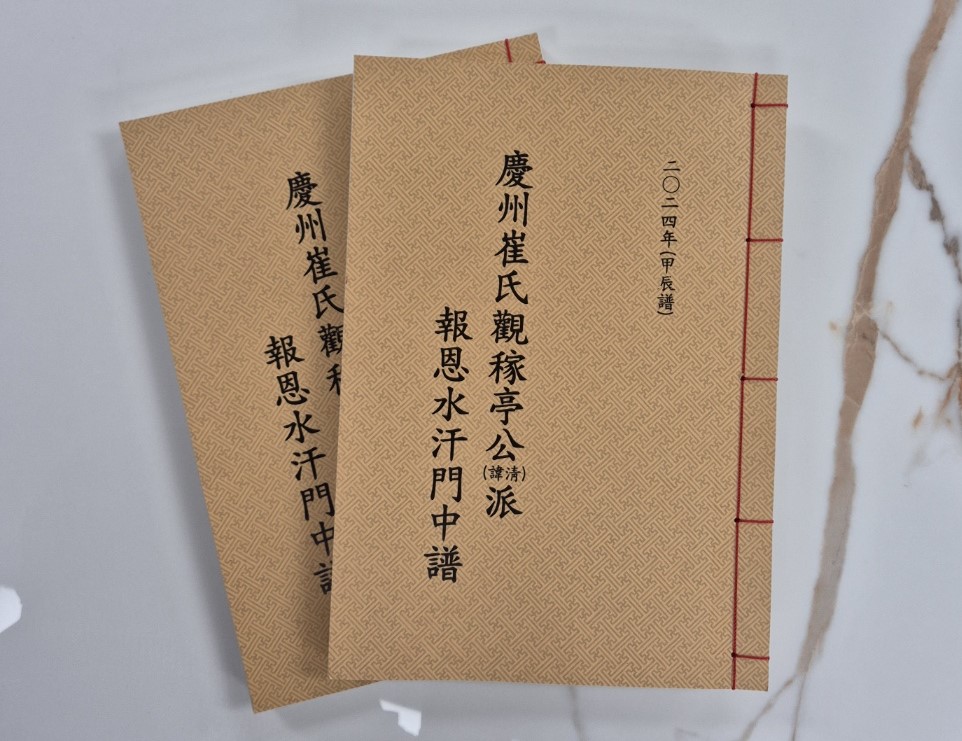 二〇二四年(甲辰譜)
慶州崔氏觀稼亭公(諱淸)派
報恩水汗門中譜
慶州崔氏觀稼
報恩水汗門中譜